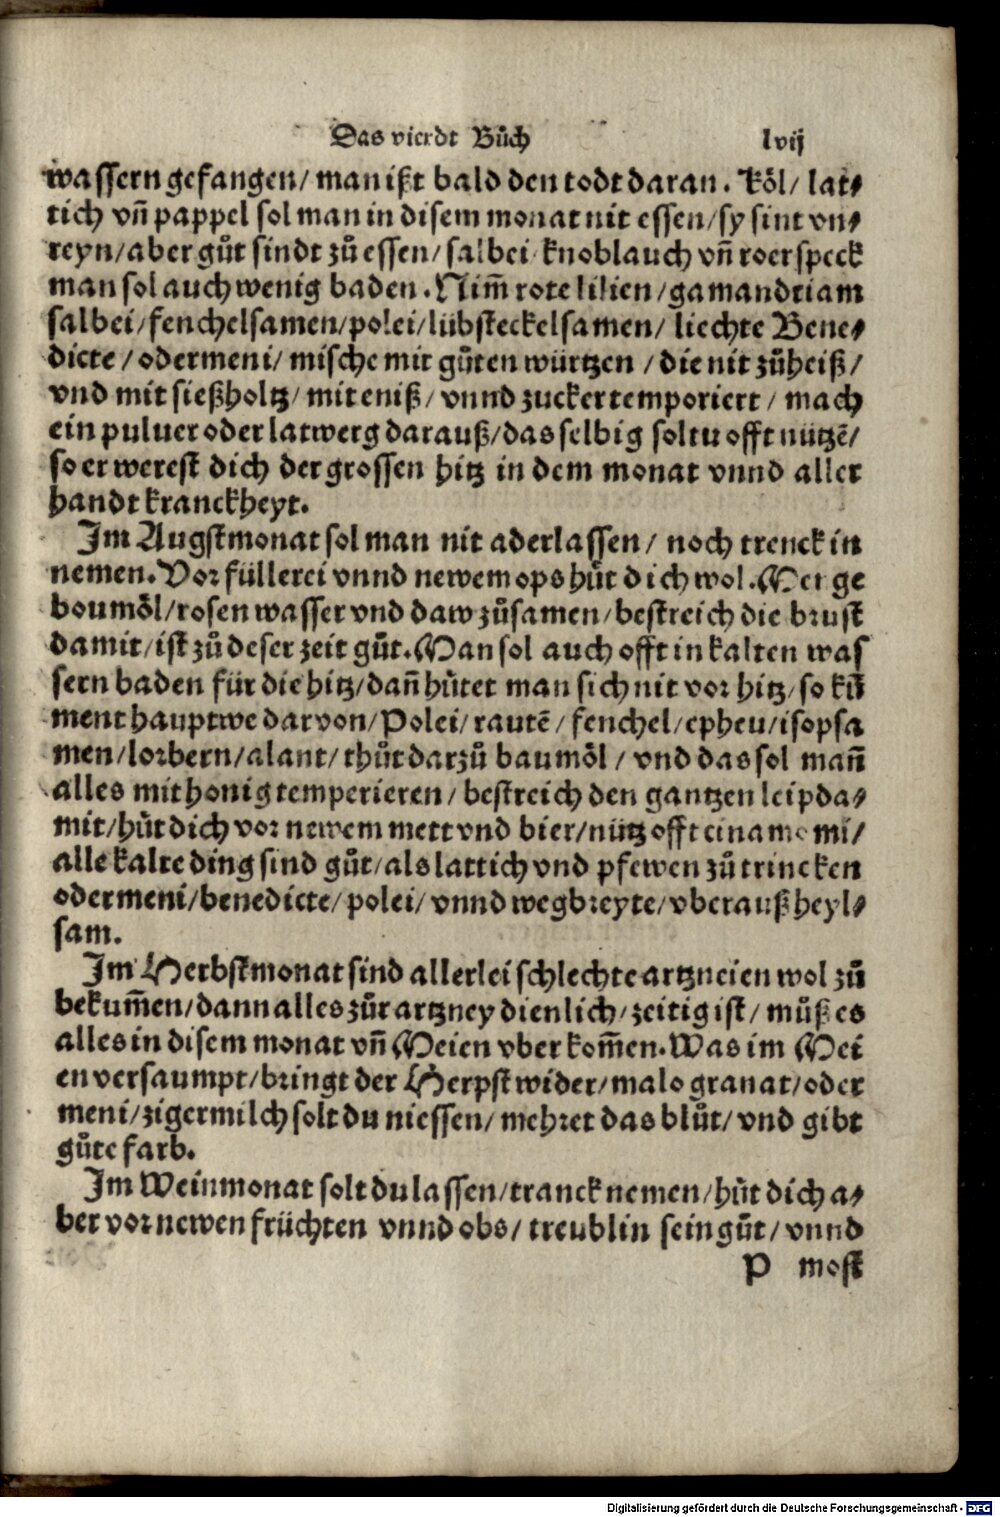 Das vierdt Bůch lvij
wassern gefangen/ man ißt bald den todt daran. Köl/ lat⸗
tich vñ pappel sol man in disem monat nit essen/ sy sint vn⸗
reyn/ aber gůt sindt zů essen/ salbei knoblauch vñ roerspeck
man sol auch wenig baden. Nim̃ rote lilien/ gamandriam
salbei/ fenchelsamen/ polei/ lübsteckelsamen/ liechte Bene⸗
dicte/ odermeni/ mische mit gůten würtzen / die nit zůheiß/
vnd mit sießholtz/ mit eniß/ vnnd zucker temporiert/ mach
ein puluer oder latwerg darauß/ das selbig soltu offt nützē/
so erwerest dich der grossen hitz in dem monat vnnd aller
handt kranckheyt.
Im Augstmonat sol man nit aderlassen/ noch trenck in
nemen. Vor füllerei vnnd newem ops hůt dich wol. Mer ge
boumöl/ rosen wasser vnd daw zůsamen/ bestreich die brust
damit/ ist zů deser zeit gůt. Man sol auch offt in kalten was
sern baden für die hitz/ dañ hůtet man sich nit vor hitz/ so kū
ment hauptwe darvon/ Polei/ rautē/ fenchel/ epheu/ isopsa
men/ lorbern/ alant/ thůt darzů baumöl/ vnd das sol mañ
alles mit honig temperieren/ bestreich den gantzen leip da⸗
mit/ hůt dich vor newem mett vnd bier/ nütz offt cinamomi/
alle kalte ding sind gůt/ als lattich vnd pfewen zů trincken
odermeni/ benedicte/ polei/ vnnd wegbreyte/ vberauß heyl⸗
sam.
Im Herbstmonat sind allerlei schlechte artzneien wol zů
bekum̃en/ dann alles zůr artzney dienlich/ zeitig ist/ můß es
alles in disem monat vñ Meien vberkom̃en. Was im Mei
en versaumpt/ bringt der Herpst wider/ malogranat/ oder
meni/ zigermilch solt du niessen/ mehret das blůt/ vnd gibt
gůte farb.
Im Weinmonat solt du lassen/ tranck nemen/ hůt dich a⸗
ber vor newen früchten vnnd obs/ treublin sein gůt/ vnnd
P most
Digitalisierung gefördert durch die Deutsche Forschungsgemeinschaft - DFG